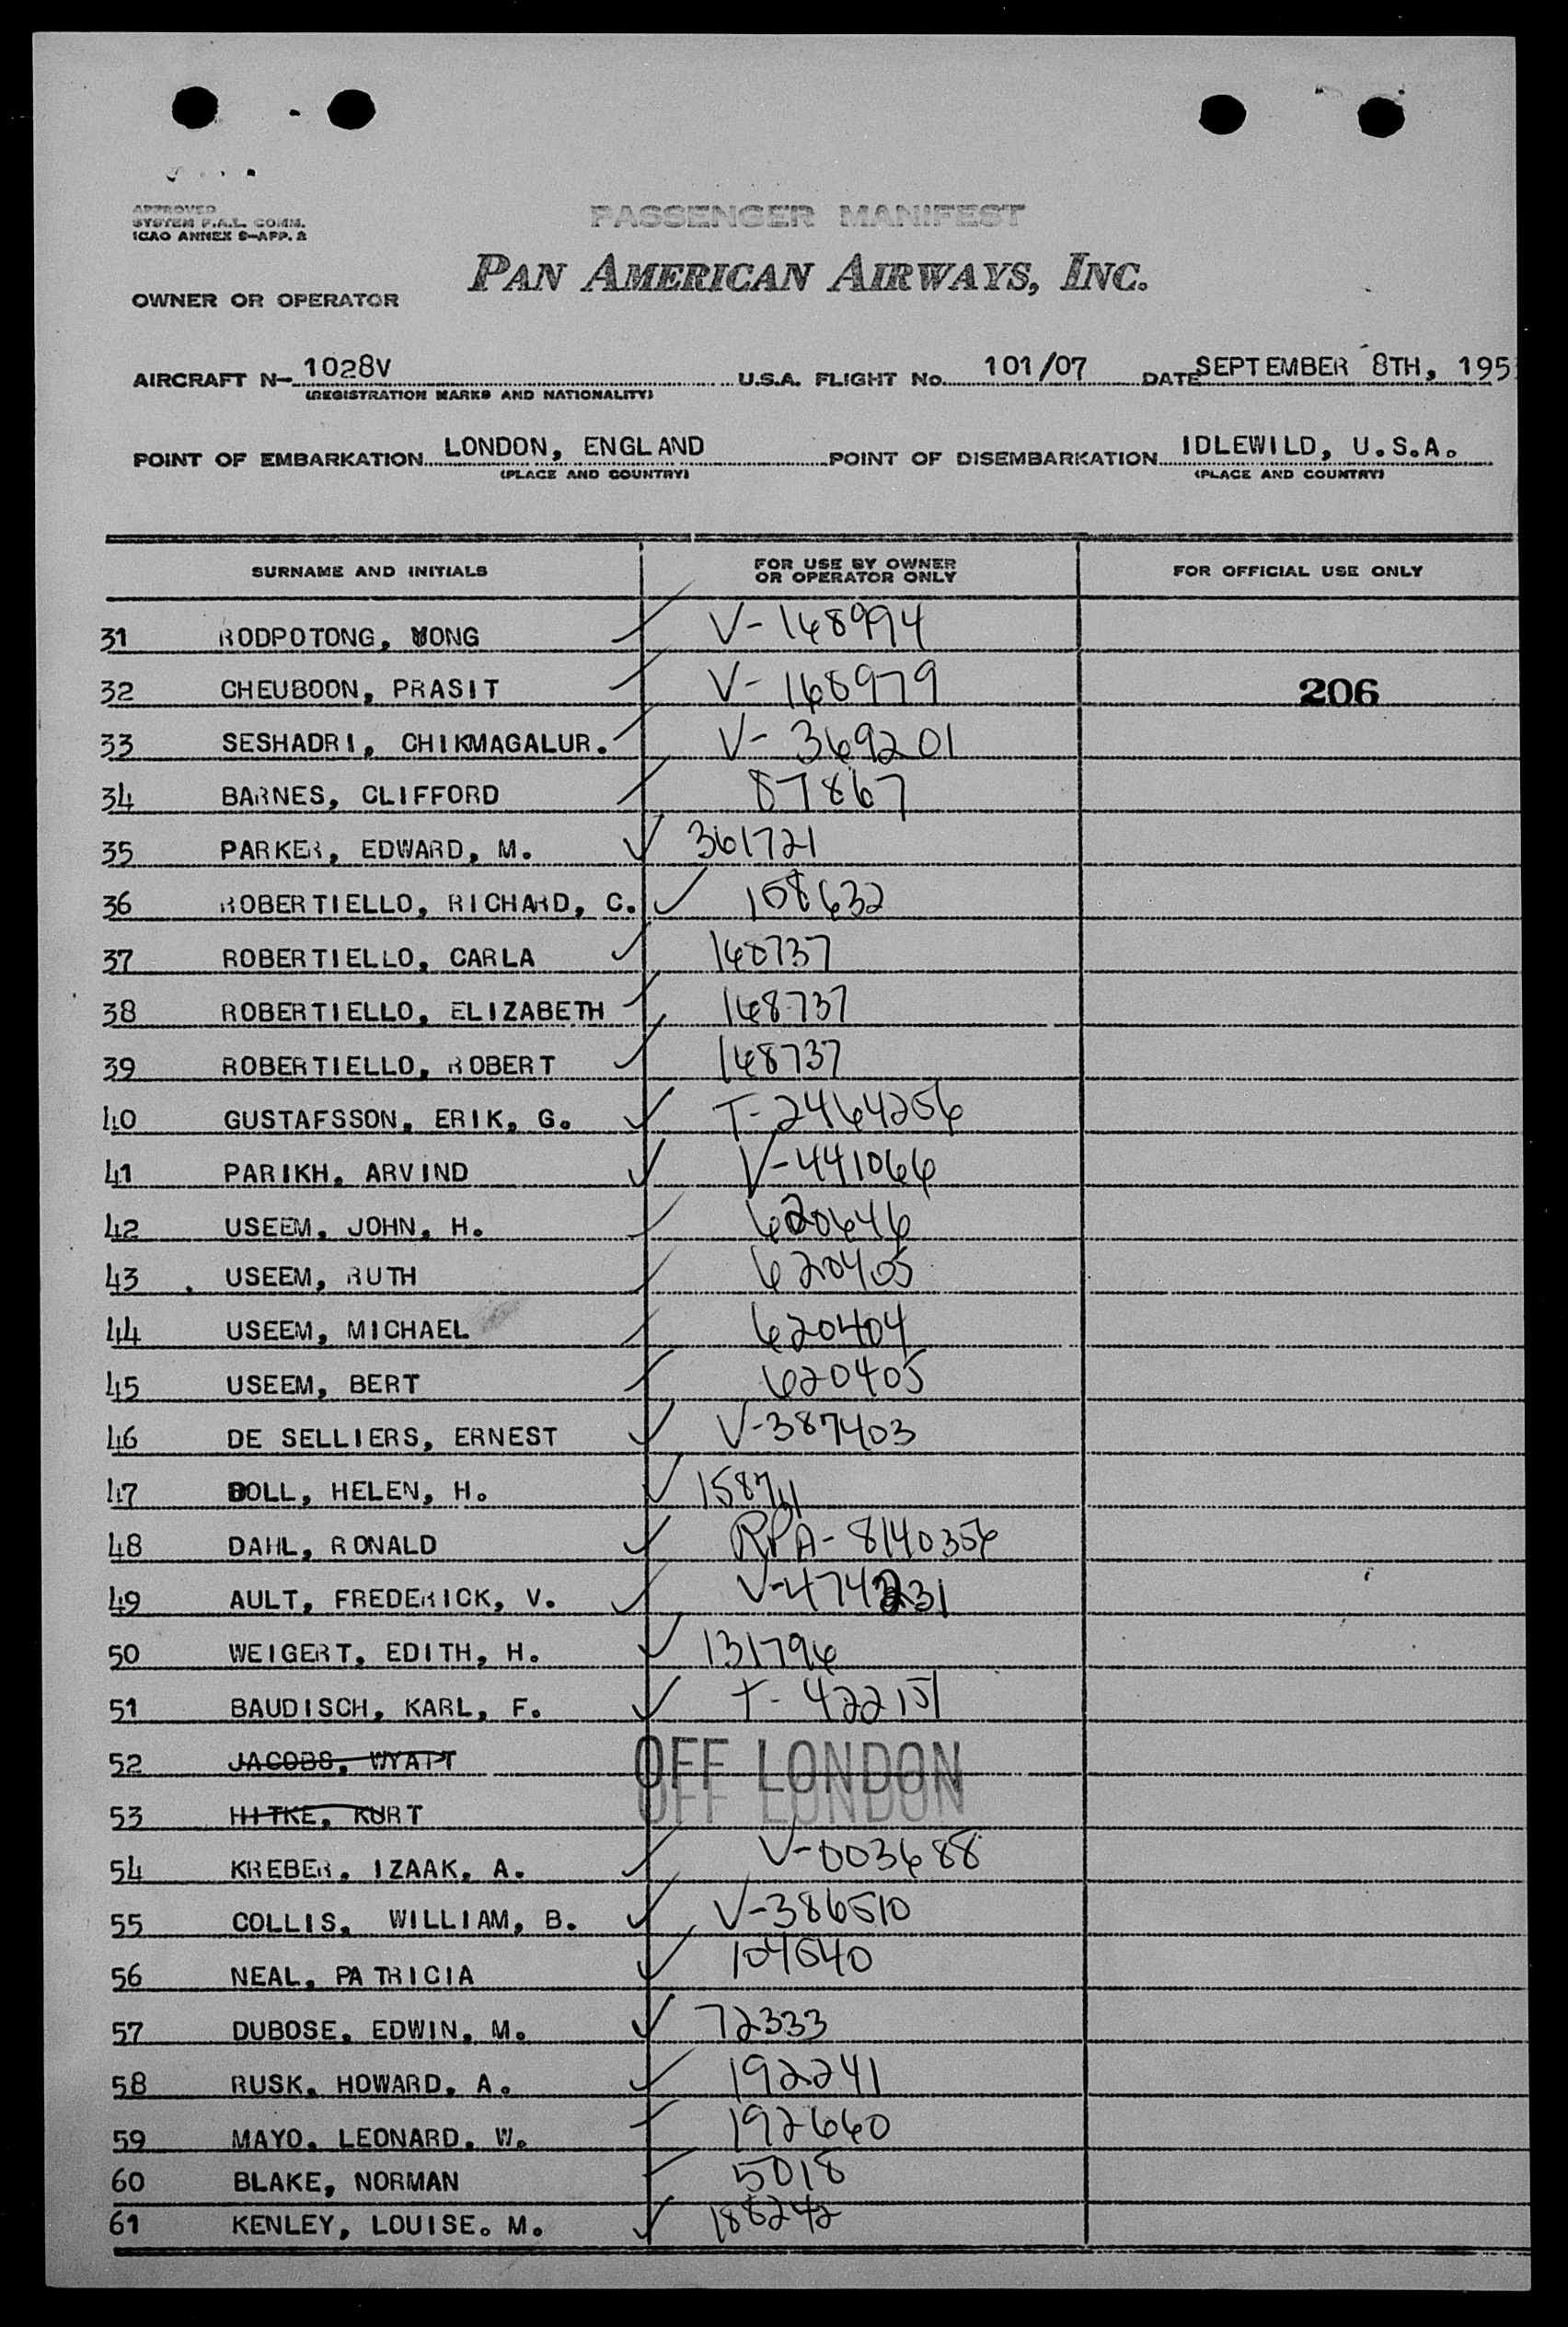 APPROVED
SYSTEM F.A.L. COMM.
ICAO ANNEX 9-APP. 2
PASSENGER MANIFEST
PAN AMERICAN AIRWAYS, INC.
OWNER OR OPERATOR
AIRCRAFT N- 1028V U.S.A. FLIGHT No. 101/07 DATE SEPTEMBER 8TH, 195
(REGISTRATION MARKS AND NATIONALITY)
POINT OF EMBARKATION LONDON, ENGLAND POINT OF DISEMBARKATION IDLEWILD, U.S.A.
(PLACE AND COUNTRY) (PLACE AND COUNTRY)
SURNAME AND INITIALS FOR USE BY OWNER OR OPERATOR ONLY FOR OFFICIAL USE ONLY
31 RODPOTONG, YONG V-168994
32 CHEUBOON, PRASIT V-168979 206
33 SESHADRI, CHIKMAGALUR. V-369201
34 BARNES, CLIFFORD 87867
35 PARKER, EDWARD, M. 361721
36 ROBERTIELLO, RICHARD, C. 158632
37 ROBERTIELLO, CARLA 168737
38 ROBERTIELLO, ELIZABETH 168737
39 ROBERTIELLO, ROBERT 168737
40 GUSTAFSSON, ERIK, G. T-2464256
41 PARIKH, ARVIND V-441066
42 USEEM, JOHN, H. 620646
43 USEEM, RUTH 620405
44 USEEM, MICHAEL 620404
45 USEEM, BERT 620405
46 DE SELLIERS, ERNEST V-387403
47 DOLL, HELEN, H.
48 DAHL, RONALD RPA-8140356
49 AULT, FREDERICK, V.
50 WEIGERT, EDITH, H. 131796
51 BAUDISCH, KARL, F. T-422151
52 JACOBS, WYATT OFF LONDON
53 HITKE, KURT OFF LONDON
54 KREBER, IZAAK, A. V-003688
55 COLLIS, WILLIAM, B. V-386510
56 NEAL, PATRICIA 104540
57 DUBOSE, EDWIN, M. 72333
58 RUSK, HOWARD, A. 192241
59 MAYO, LEONARD, W. 192660
60 BLAKE, NORMAN 5018
61 KENLEY, LOUISE. M. 188242